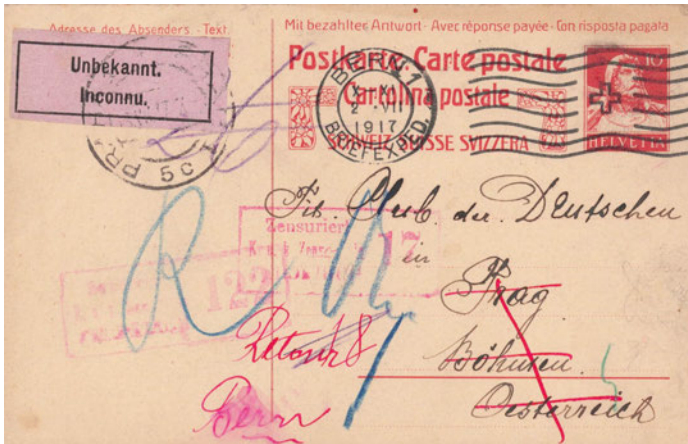 Adresse des Absenders - Text
Mit bezahlter Antwort - Avec réponse payée - Con risposta pagata
Unbekannt.
Inconnu.
Postkarte Carte postale
Cartolina postale
SCHWEIZ SUISSE SVIZZERA
BERN 1
1917
BRIEFEXPED.
10
HELVETIA
PRA
5c
Club der Deutschen
in
Prag
Böhmen
Oesterreich
Zensuriert
17
122
Retour
Bern